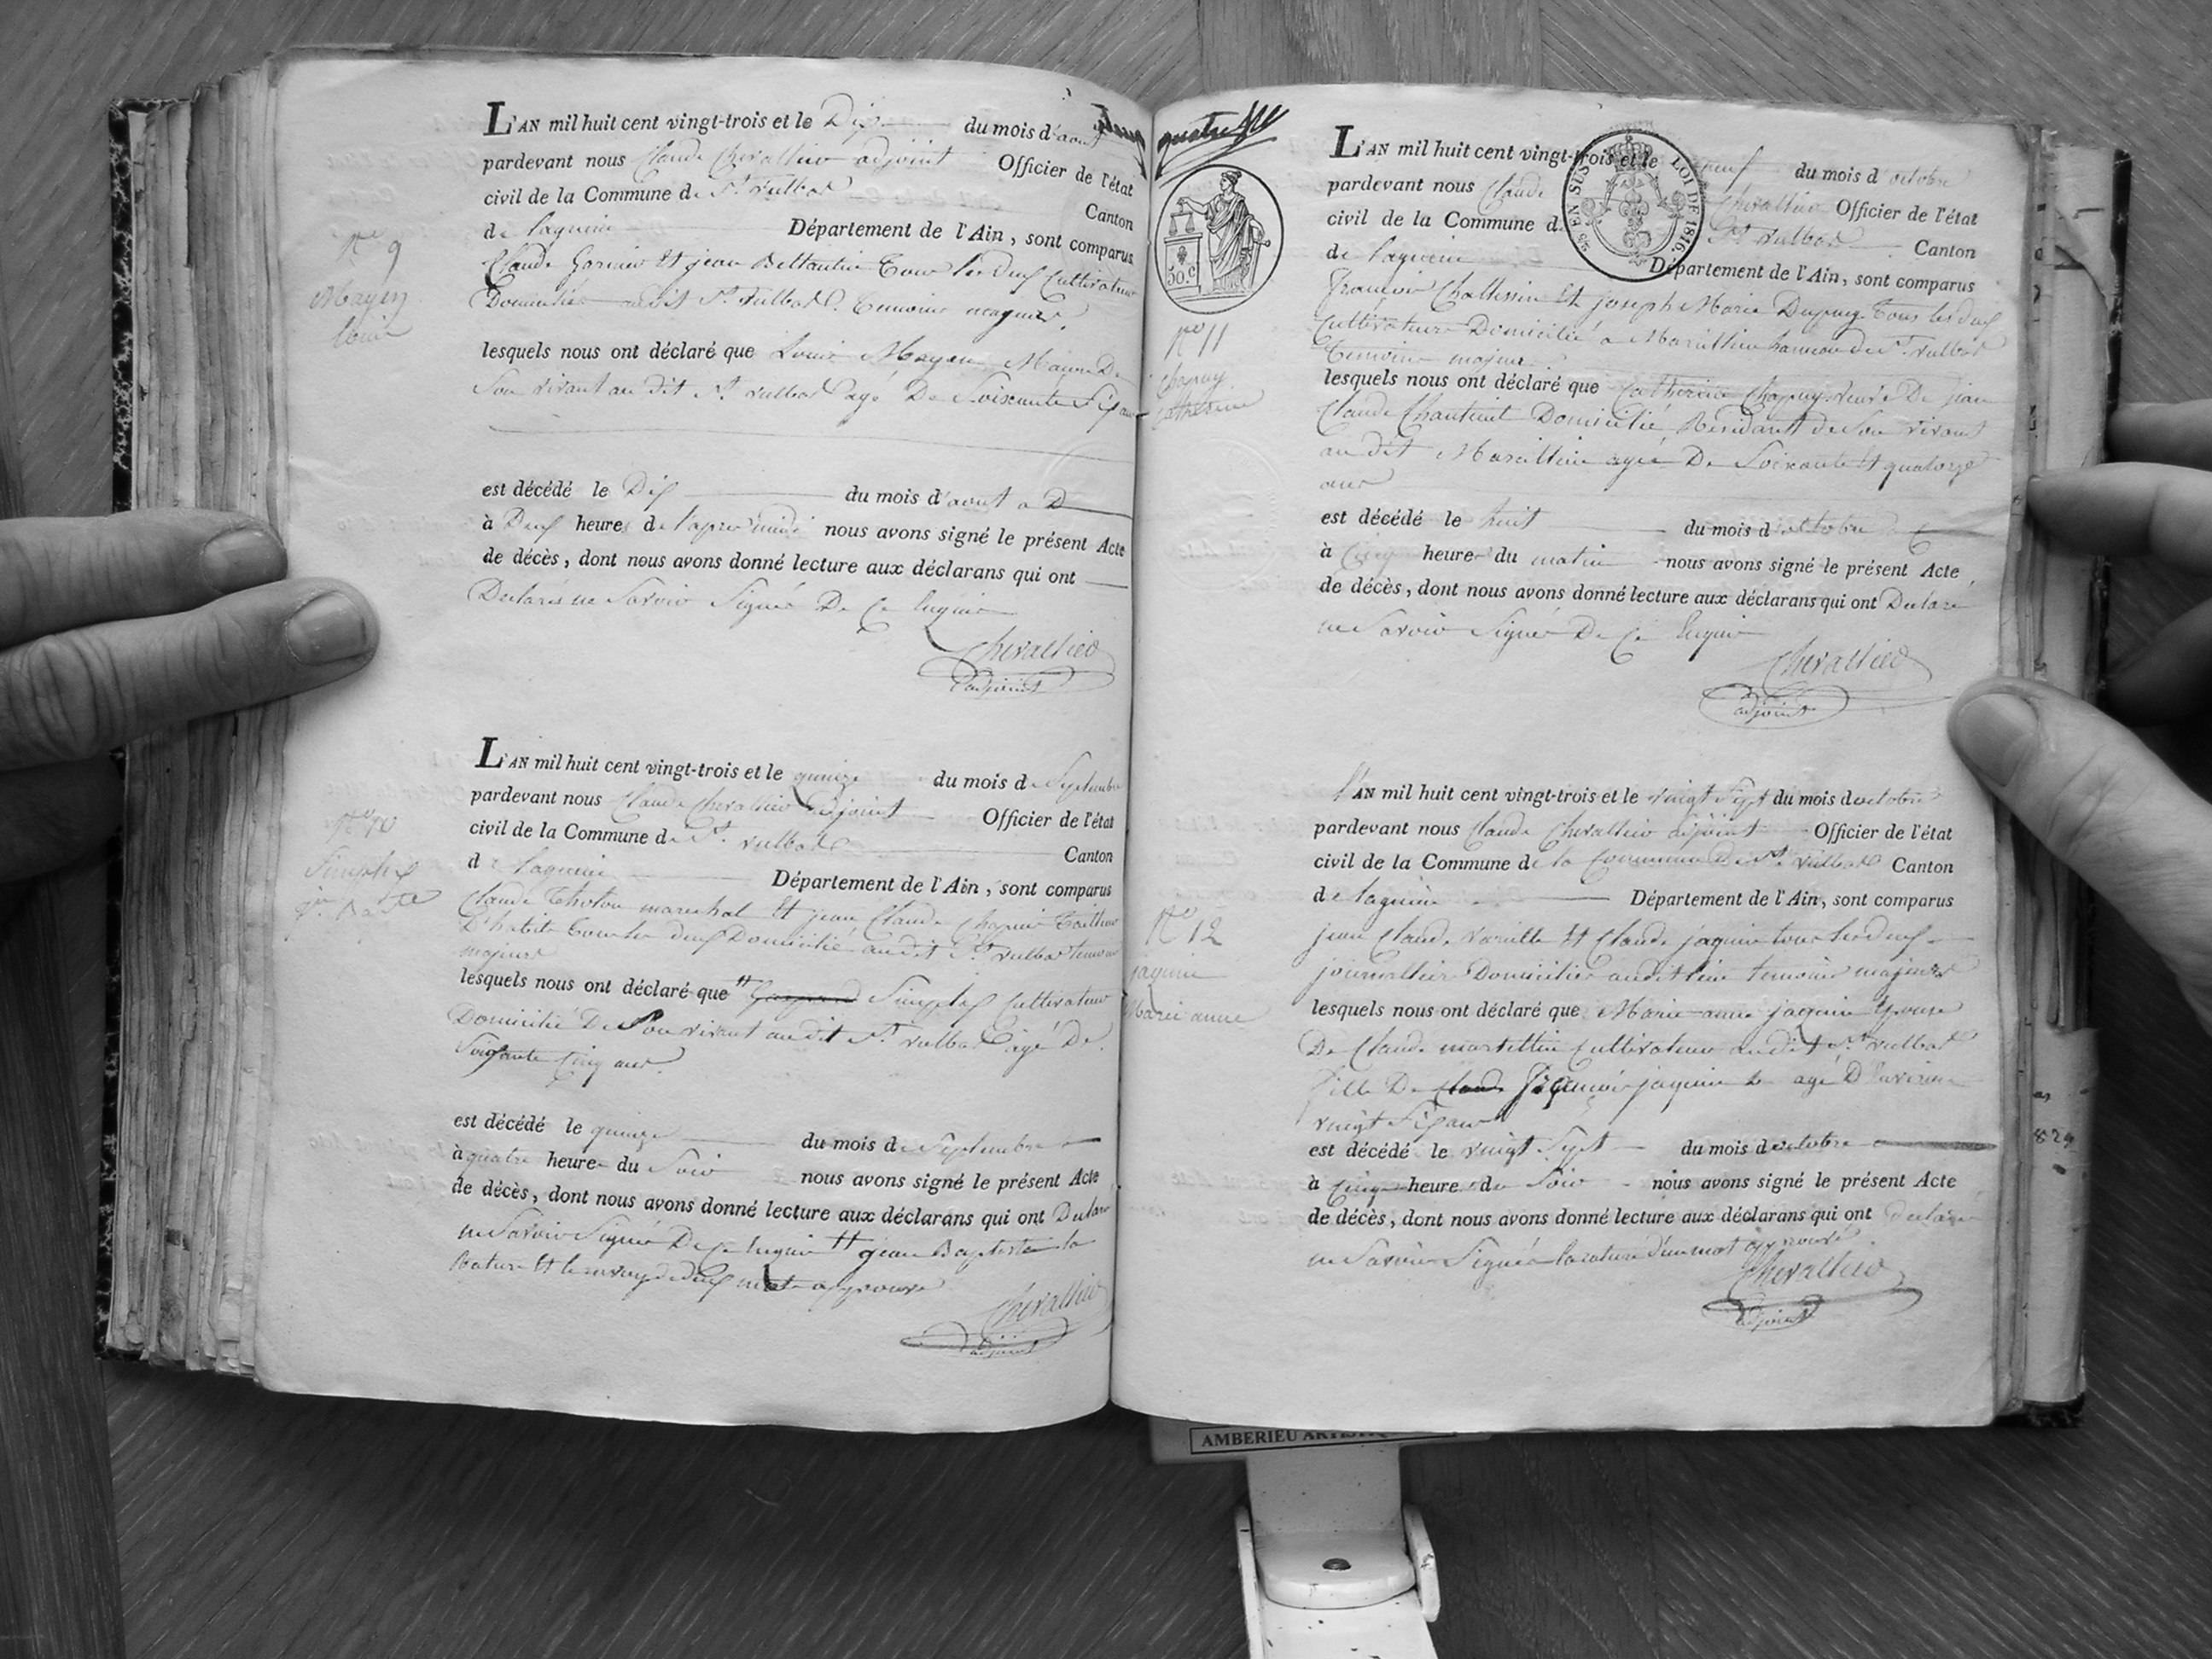 L'AN mil huit cent vingt-trois et le Dix du mois d'aout
pardevant nous Claude Chevallier adjoint Officier de l'état
civil de la Commune de St. Vulbas Canton
de Lagnieu Département de l'Ain, sont comparus
N° 9
Mayen
Louis
Claude et jean tous les deux Cultivateurs
Domiciliés audit St. Vulbas temoins majeurs
lesquels nous ont déclaré que Louis Mayen De
Son vivant au dit St. Vulbas agé De Soixante Six ans
est décédé le Dix du mois d'aout
à Deux heures de l'apres midi nous avons signé le présent Acte
de décès, dont nous avons donné lecture aux déclarans qui ont
Declarés ne Savoir Signer De Ce Enquis
Chevallier
adjoint
L'AN mil huit cent vingt-trois et le quinze du mois de Septembre
pardevant nous Claude Chevallier adjoint Officier de l'état
civil de la Commune de St. Vulbas Canton
de Lagnieu Département de l'Ain, sont comparus
N° 10
Simplex
jn. Bapte
Claude Tholon marechal Et jean Claude Tailleur
D'habits tous les deux Domicilié audit St. Vulbas temoins
majeurs
lesquels nous ont déclaré que Simplex Cultivateur
Domicilié De Son vivant au dit St. Vulbas agé De
Soixante Cinq ans
est décédé le quinze du mois de Septembre
à quatre heures du Soir nous avons signé le présent Acte
de décès, dont nous avons donné lecture aux déclarans qui ont Declaré
ne Savoir Signer De Ce Enquis jean Baptiste la
Rature Et le renvoy de deux mots approuvé
Chevallier
adjoint
quatre
50 c.
25 EN SUS LOI DE 1816
L'AN mil huit cent vingt-trois et le neuf du mois d octobre
pardevant nous Claude Chevallier Officier de l'état
civil de la Commune de St Vulbas Canton
de Lagnieu Département de l'Ain, sont comparus
N° 11
Chapuy
Catherine
François Et joseph Marie Dupuy Tous les deux
Cultivateurs Domicilié a Marcillieu hameau de St. Vulbas
temoins majeurs
lesquels nous ont déclaré que Catherine Chapuy veuve De jean
Claude Domicilié Residant de Son vivant
au dit Marcillieu agée De Soixante Et quatorze
ans
est décédé le huit du mois d octobre
à Cinq heures du matin nous avons signé le présent Acte
de décès, dont nous avons donné lecture aux déclarans qui ont Declaré
ne Savoir Signer De Ce Enquis
Chevallier
adjoint
L'AN mil huit cent vingt-trois et le vingt Sept du mois d octobre
pardevant nous Claude Chevallier adjoint Officier de l'état
civil de la Commune de la Commune De St. Vulbas Canton
de Lagnieu Département de l'Ain, sont comparus
N° 12
jaquin
Marie anne
jean Claude Et Claude jaquin tous les deux
journalliers Domiciliés audit lieu temoins majeurs
lesquels nous ont déclaré que Marie anne jaquin Epouse
De Claude martellin Cultivateur audit St. Vulbas
fille De Claude François jaquin agé D'Environ
vingt Six ans
est décédé le vingt Sept du mois d octobre
à Cinq heures du Soir nous avons signé le présent Acte
de décès, dont nous avons donné lecture aux déclarans qui ont Declaré
ne Savoir Signer la rature d'un mot approuvé
Chevallier
adjoint
AMBERIEU